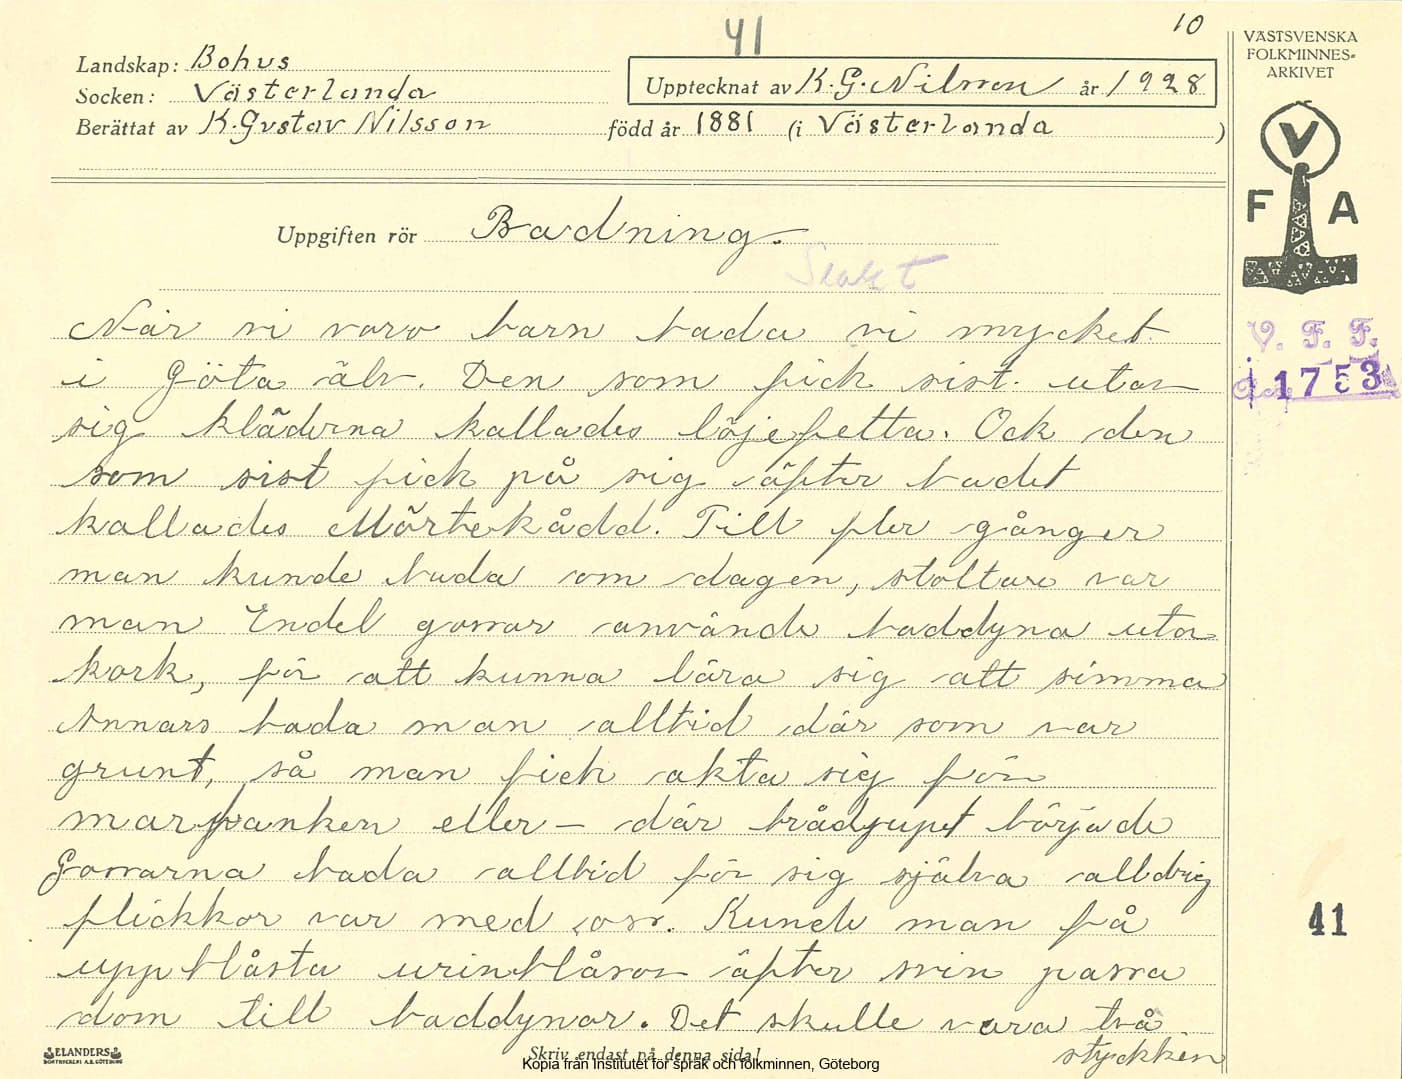 41
10
Landskap: Bohus
Socken: Västerlanda
Berättat av K. Gustav Nilsson
Upptecknat av K. G. Nilsson år 1928
född år 1881 (i Västerlanda )
VÄSTSVENSKA
FOLKMINNES-
ARKIVET
V
F A
Uppgiften rör Badning.
V. F. F.
1753
När vi voro barn bada vi mycket
i Göta älv. Den som fick sist utav
sig kläderna kallades löjefetta. Ock den
som sist fick på sig äfter badet
kallades Mörtekådd. Till fler gånger
man kunde bada om dagen, stoltare var
man Endel gossar använde baddyna uta
kork, för att kunna lära sig att simma
Annars bada man alltid där som var
grunt, så man fick akta sig för
marbanken eller – där brådjupet började
Gossarna bada alltid för sig själva alldrig
flickkor var med oss. Kunde man få
uppblåsta urinblåsor äfter svin passa
dom till baddynor. Det skulle vara två
stycken
41
ELANDERS
BOKTRYCKERI A.B. GÖTEBORG
Skriv endast på denna sida!
Kopia från Institutet för språk och folkminnen, Göteborg